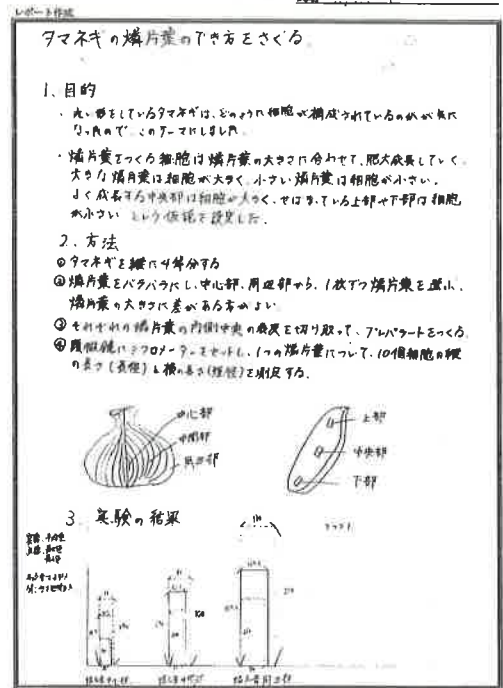 レポート作成
タマネギの燐片葉のでき方をさぐる
1. 目的
・丸い形をしているタマネギは、どのように細胞が構成されているのかが気に
なったので、このテーマにしました
・燐片葉をつくる細胞は燐片葉の大きさに合わせて、肥大成長していく。
大きな燐片葉は細胞が大きく、小さい燐片葉は細胞が小さい。
よく成長する中央部は細胞が大きく、せばまっている上部や下部は細胞
が小さい という仮説を設定した。
2. 方法
①タマネギを縦に4等分する
②燐片葉をバラバラにし、中心部、周辺部から、1枚ずつ燐片葉を選ぶ、
燐片葉の大きさに差がある方がよい
③それぞれの燐片葉の内側中央の表皮を切り取って、プレパラートをつくる
④顕微鏡にミクロメーターをセットし、1つの燐片葉について、10個細胞の縦
の長さ(長径)と横の長さ(短径)を測定する.
中心部
中間部
周辺部
上部
中央部
下部
3. 実験の結果